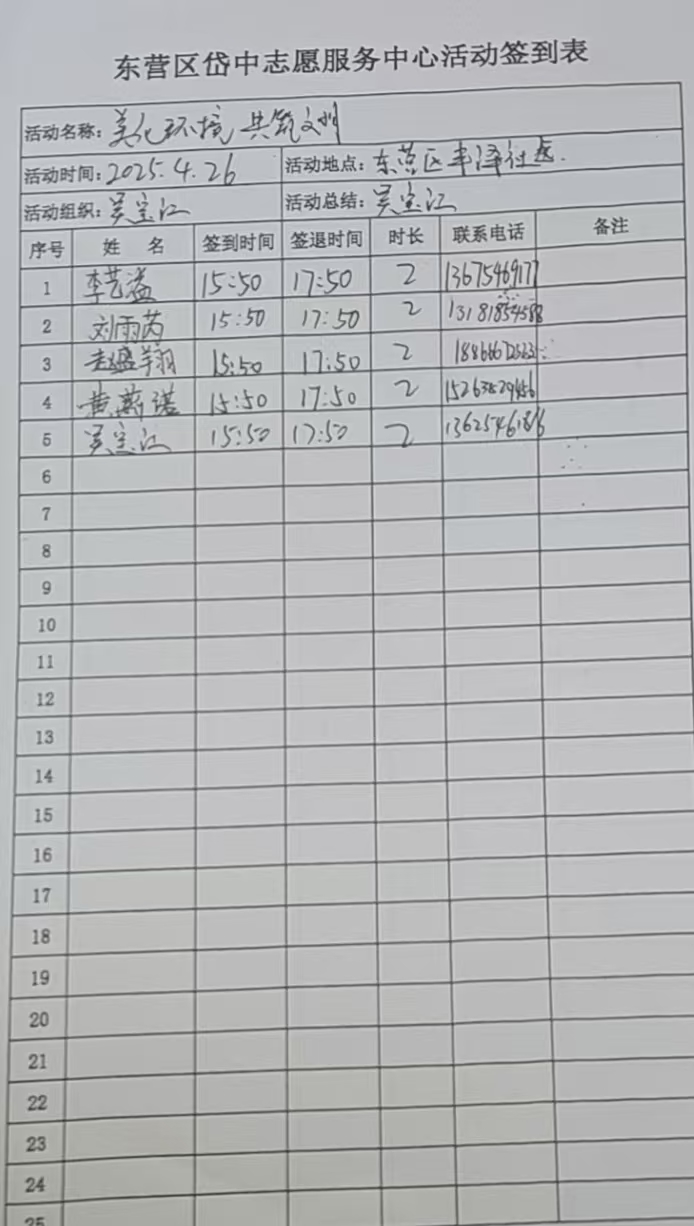 东营区岱中志愿服务中心活动签到表
活动名称：美化环境 共筑文明
活动时间：2025.4.26 活动地点：东营区丰泽社区.
活动组织：吴宝江 活动总结：吴宝江
序号 姓 名 签到时间 签退时间 时长 联系电话 备注
1 李艺溢 15:50 17:50 2
2 刘雨芮 15:50 17:50 2
3 赵盛翔 15:50 17:50 2
4 黄 诺 15:50 17:50 2
5 吴宝江 15:50 17:50 2
6
7
8
9
10
11
12
13
14
15
16
17
18
19
20
21
22
23
24
25